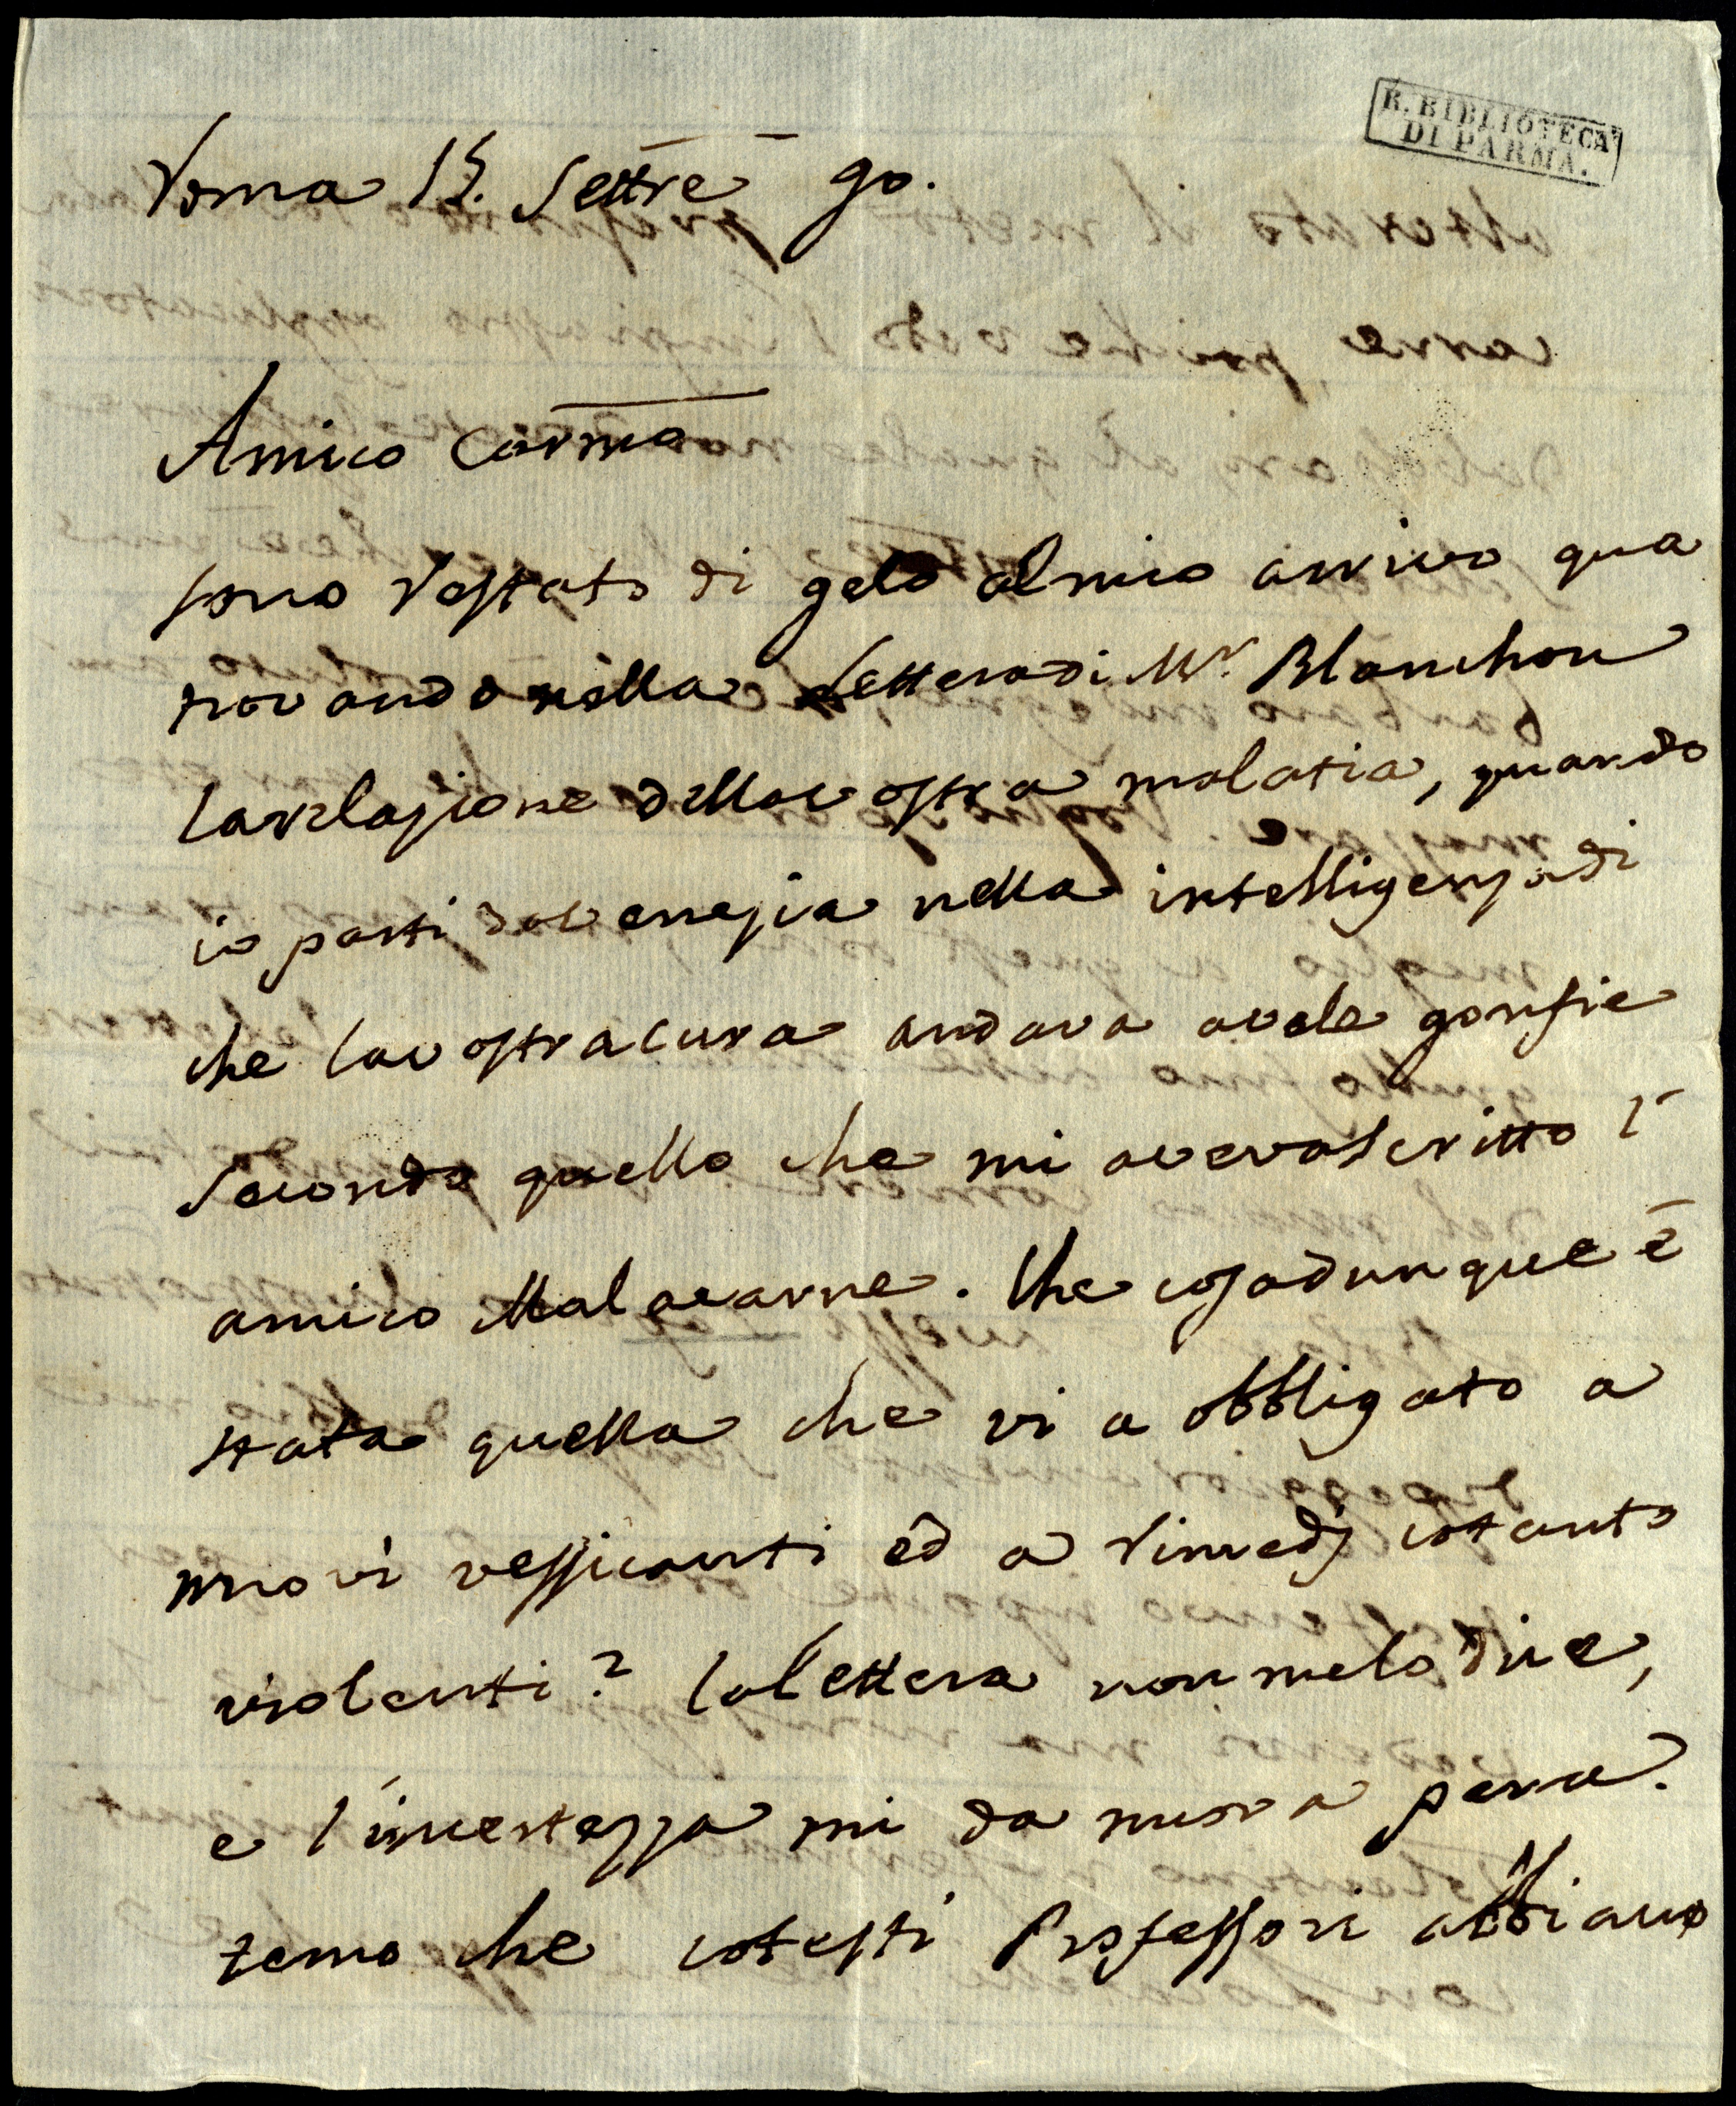 R. BIBLIOTECA
DI PARMA.
Roma 15. Settre 90.
Amico Carmo
sono restato di gelo al mio arrivo qua
trovando nella lettera di Mr. Blanchon
la relazione della vostra malatia, quando
io parti da Venezia nella intelligenza di
che la vostra cura andava a vele gonfie
secondo quello che mi aveva scritto l'
amico Malacarne. Che cosa dunque è
stata quella che vi a obbligato a
nuovi vessicanti ed a rimedj cotanto
violenti? la lettera non me lo dice,
e l'incertezza mi da nuova pena.
temo che cotesti Professori abbiano